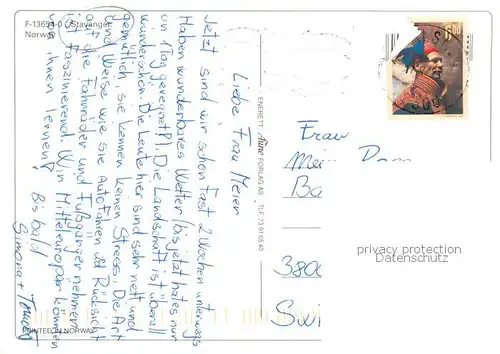 F-13654-0 Stavanger.
Norway
Liebe Frau Meier
Jetzt sind wir schon fast 2 Wochen unterwegs.
Haben wunderbares Wetter (bis jetzt hat es nur
an 1 Tag geregnet!!). Die Landschaft ist überall
wunderschön. Die Leute hier sind sehr nett und
gemütlich, sie kennen keinen Stress. Die Art
und Weise wie sie Autofahren und Rücksicht
auf die Fahrräder und Fußgänger nehmen
ist faszinierend. Wir Mitteleuropäer können
von ihnen lernen!
Bis bald
Simona +
PRINTED IN NORWAY
ENERETT Aune FORLAG AS TLF. 73 91 65 40
Frau
Mei
Ba
3800
Swi
privacy protection
Datenschutz